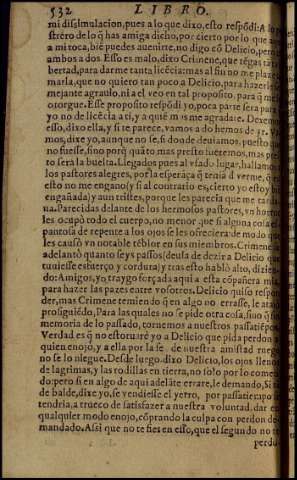 532 LIBRO
mi dissimulacion, pues a lo que dixo, esto respõdi: A lo po
strero de lo q̃ has amiga dicho, por cierto por lo que a
a mi toca, biẽ puedes auenirte, no digo cõ Delicio, pero cõ
ambos a dos. Esso es malo, dixo Crimene, que tẽgas tã
bertad, para darme tanta licẽcia: mas al fin no me plaze
marla, que no quiero tan poco a Delicio, para hazerle se
mejante agrauio, ni a el veo en tal proposito, para q̃ me
otorgue. Esse proposito respõdi yo, poca parte sera para
yo no de licẽcia a ti, y a quiẽ mas me agradare. Dexemos
esso, dixo ella, y si te parece, vamos a do hemos de yr. Va
mos, dixe yo, aunque no se, si do nde deuiamos: puesto que
no fuesse, sino porq̃ quãto mas presto fueremos, mas pres
to sera la buelta. Llegados pues al vsado lugar, hallamos
los pastores alegres, por la esperãça q̃ tenia d̃ verme, q̃ en
esto no me engano (y si al contrario es, cierto yo estoy biẽ
engañada) y aun tristes, porque les parecia que me tarda
ua. Parecidas delante de los hermosos pastores, vn horror
les ocupò todo el cuerpo, no menor que si alguna cosa es
pantosa de repente a los ojos se les ofreciera: de modo que
les causò vn notable tẽblor en sus miembros. Crimene se
adelantò quanto seys passos (deuia de dezir a Delicio que
tuuiesse esfuerço y cordura) y tras esto hablò alto, diziẽn
do: Amigos, yo traygo forçada aqui a esta cõpañera mia
para hazer las pazes entre vosotros. Delicio quiso respon
der, mas Crimene temiendo q̃ en algo no errasse, le atajò
prosiguiẽdo, Para las quales no se pide otra cosa, sino q̃ sin
memoria de lo passado, tornemos a nuestros passatiẽpos.
Verdad es q̃ no estoruarẽ yo a Delicio que pida perdon a
quien enojò, y a ella por la fe de nuestra amistad ruego
no se lo niegue. Desde luego, dixo Delicio, los ojos llenos
de lagrimas, y las rodillas en tierra, no solo por lo come
do: pero si en algo de aqui adelãte errare, le demando, Si
de balde, dixe yo, se vendiesse el yerro, por passatiempo le
tendria, a trueco de satisfazer a nuestra voluntad, dar en
qualquier modo enojo, cõprando la culpa con perdon de
mandado. Assi que no te fies en esso, que el segundo no te
perdo